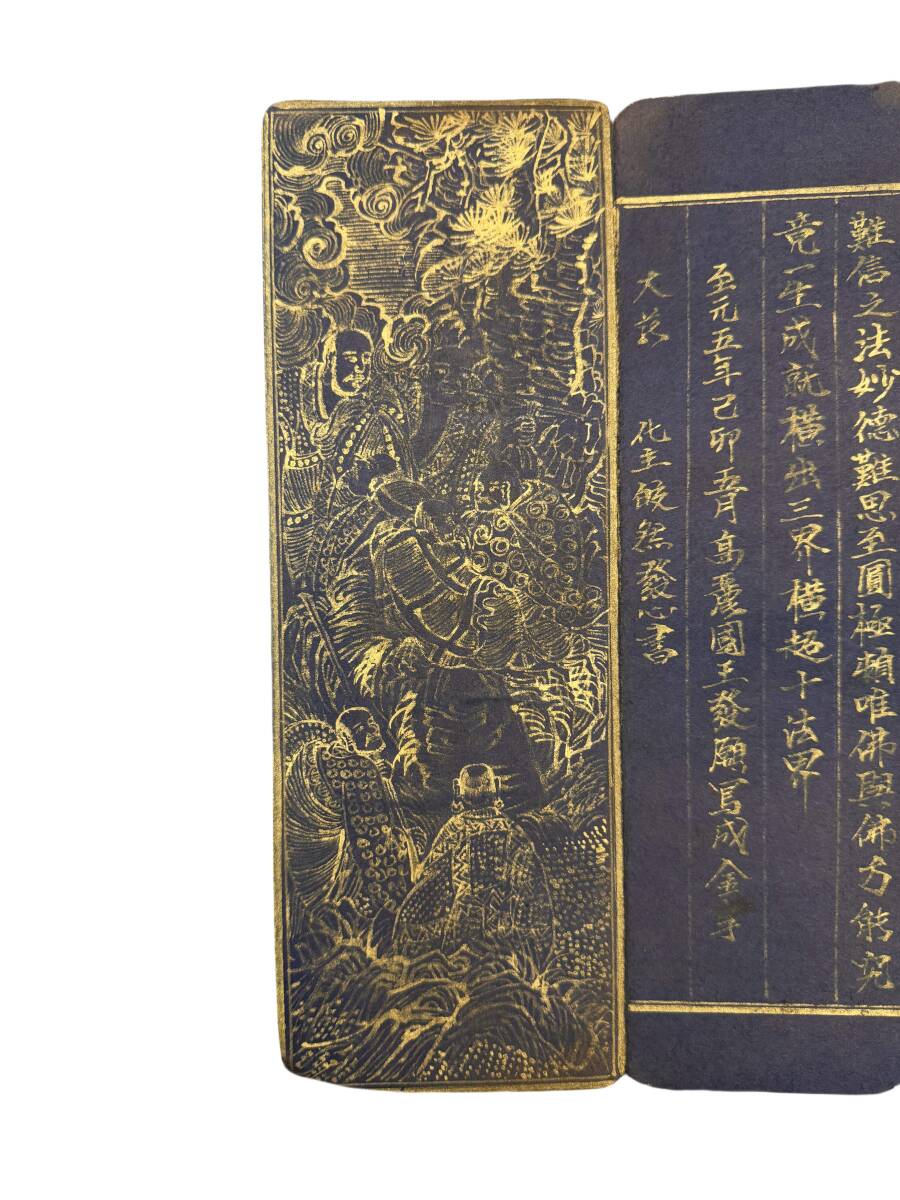 難信之法妙德難思至圓極頓唯佛與佛方能究
竟一生成就橫出三界橫超十法界
至元五年己卯五月高麗國王發願寫成金字
大 化主皎然發心書